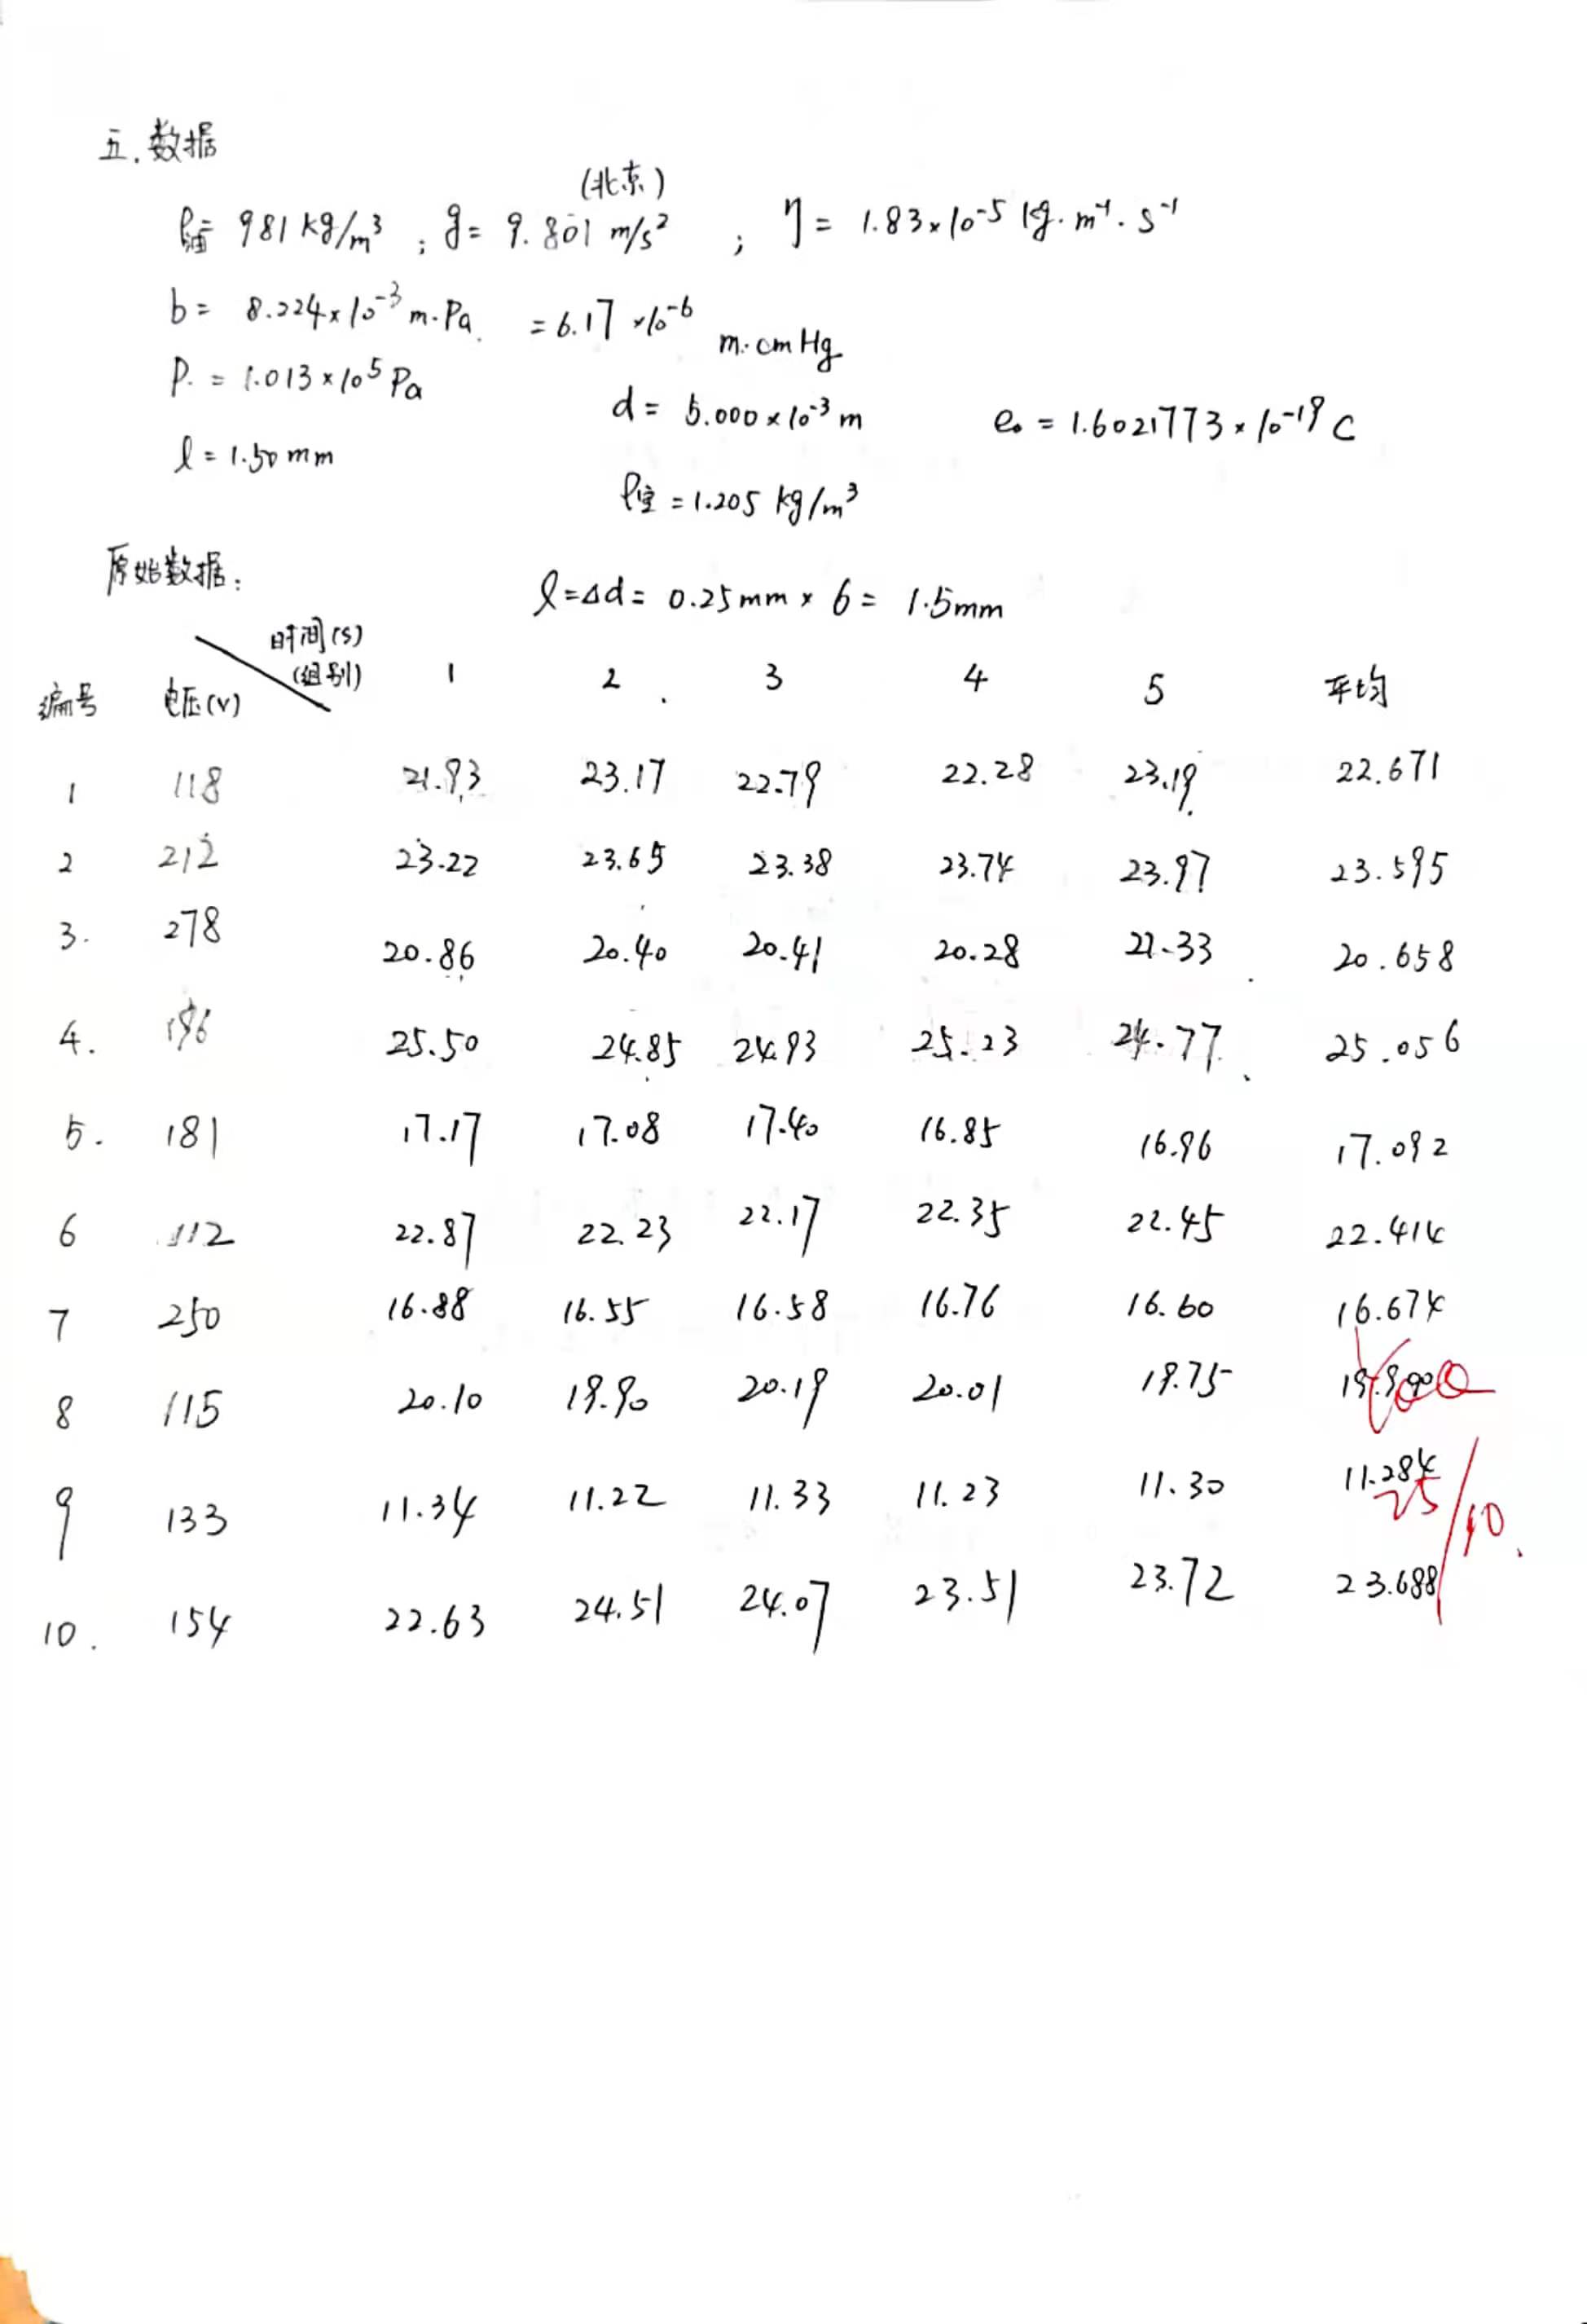 五.数据
(北京)
ρ油 981 kg/m³ ; g= 9.801 m/s² ; η= 1.83×10⁻⁵ kg·m⁻¹·s⁻¹
b= 8.224×10⁻³ m·Pa. =6.17×10⁻⁶ m·cmHg
P. = 1.013×10⁵ Pa
d= 5.000×10⁻³ m e₀ = 1.6021773×10⁻¹⁹ C
l = 1.50 mm
ρ空 = 1.205 kg/m³
原始数据:
l=Δd= 0.25mm × 6= 1.5mm
编号 电压(V) 时间(s) (组别) 1 2 3 4 5 平均
1 118 21.93 23.17 22.79 22.28 23.19 22.671
2 212 23.22 23.65 23.38 23.74 23.97 23.595
3. 278 20.86 20.40 20.41 20.28 21.33 20.658
4. 196 25.50 24.85 24.93 25.23 24.77 25.056
5. 181 17.17 17.08 17.40 16.85 16.96 17.092
6 112 22.87 22.23 22.17 22.35 22.45 22.414
7 250 16.88 16.55 16.58 16.76 16.60 16.674
8 115 20.10 19.90 20.19 20.01 19.75
9 133 11.34 11.22 11.33 11.23 11.30 11.284
25/10.
10. 154 22.63 24.51 24.07 23.51 23.72 23.688